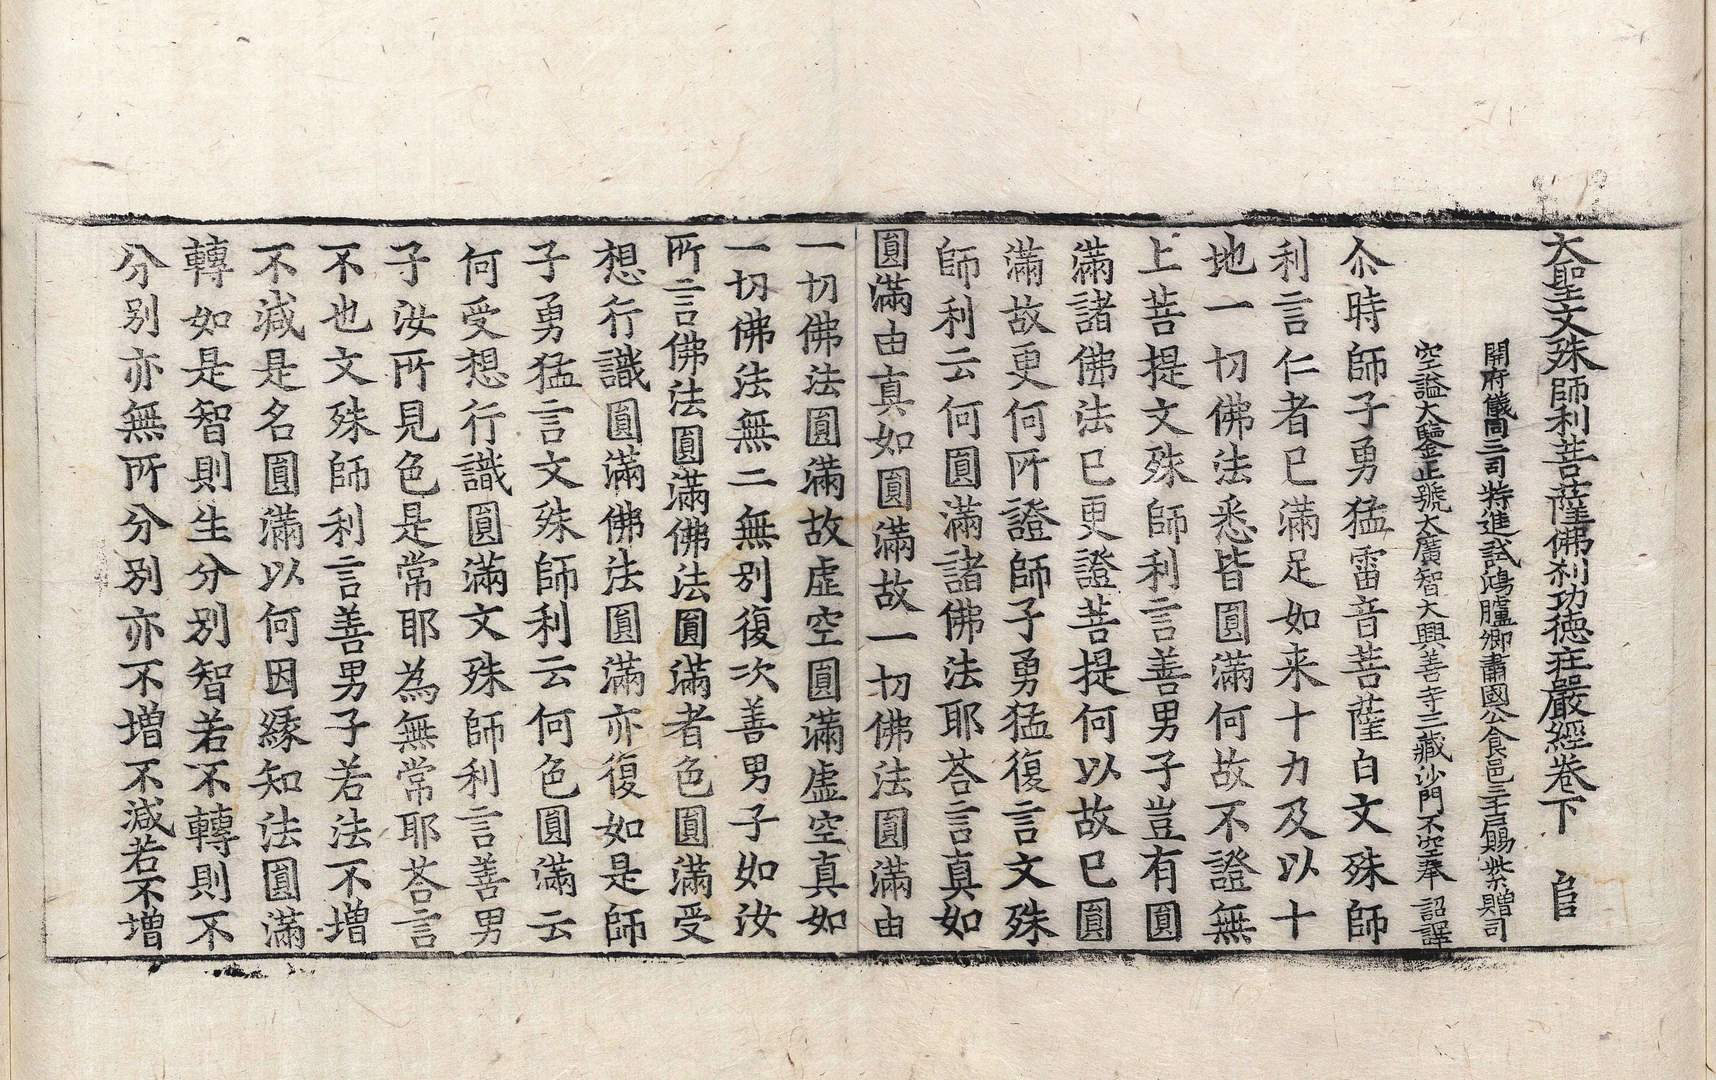 大聖文殊師利菩薩佛刹功德莊嚴經卷下　官
開府儀同三司特進試鴻臚卿肅國公食邑三千戶賜紫贈司
空謚大鑒正號大廣智大興善寺三藏沙門不空奉　詔譯
尒時師子勇猛雷音菩薩白文殊師
利言仁者已滿足如来十力及以十
地一切佛法悉皆圓滿何故不證無
上菩提文殊師利言善男子豈有圓
滿諸佛法已更證菩提何以故已圓
滿故更何所證師子勇猛復言文殊
師利云何圓滿諸佛法耶荅言真如
圓滿由真如圓滿故一切佛法圓滿由
一切佛法圓滿故虛空圓滿虛空真如
一切佛法無二無別復次善男子如汝
所言佛法圓滿佛法圓滿者色圓滿受
想行識圓滿佛法圓滿亦復如是師
子勇猛言文殊師利云何色圓滿云
何受想行識圓滿文殊師利言善男
子汝所見色是常耶為無常耶荅言
不也文殊師利言善男子若法不增
不減是名圓滿以何因緣知法圓滿
轉如是智則生分別智若不轉則不
分別亦無所分別亦不增不減若不增